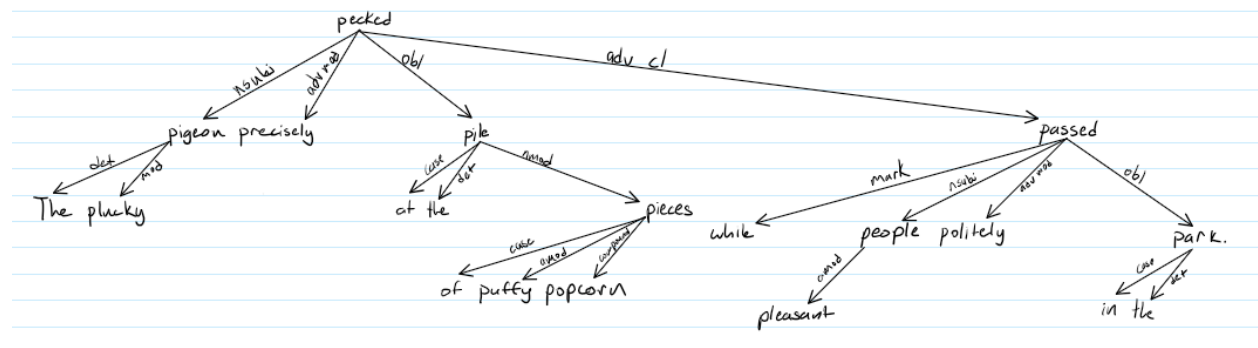 pecked
nsubj advmod obl adv cl
pigeon precisely pile passed
det mod case det nmod mark nsubj advmod obl
The plucky at the pieces while people politely park.
case amod compound amod case det
of puffy popcorn pleasant in the